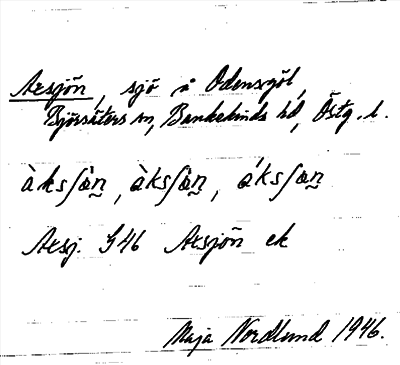 Axsjön, sjö å Odensgöl,
Björsäters sn, Bankekinds hd, Östg. l.
àksʃần, àksʃần, áksʃan
Axsj. G46 Axsjön ek
Maja Nordlund 1946.